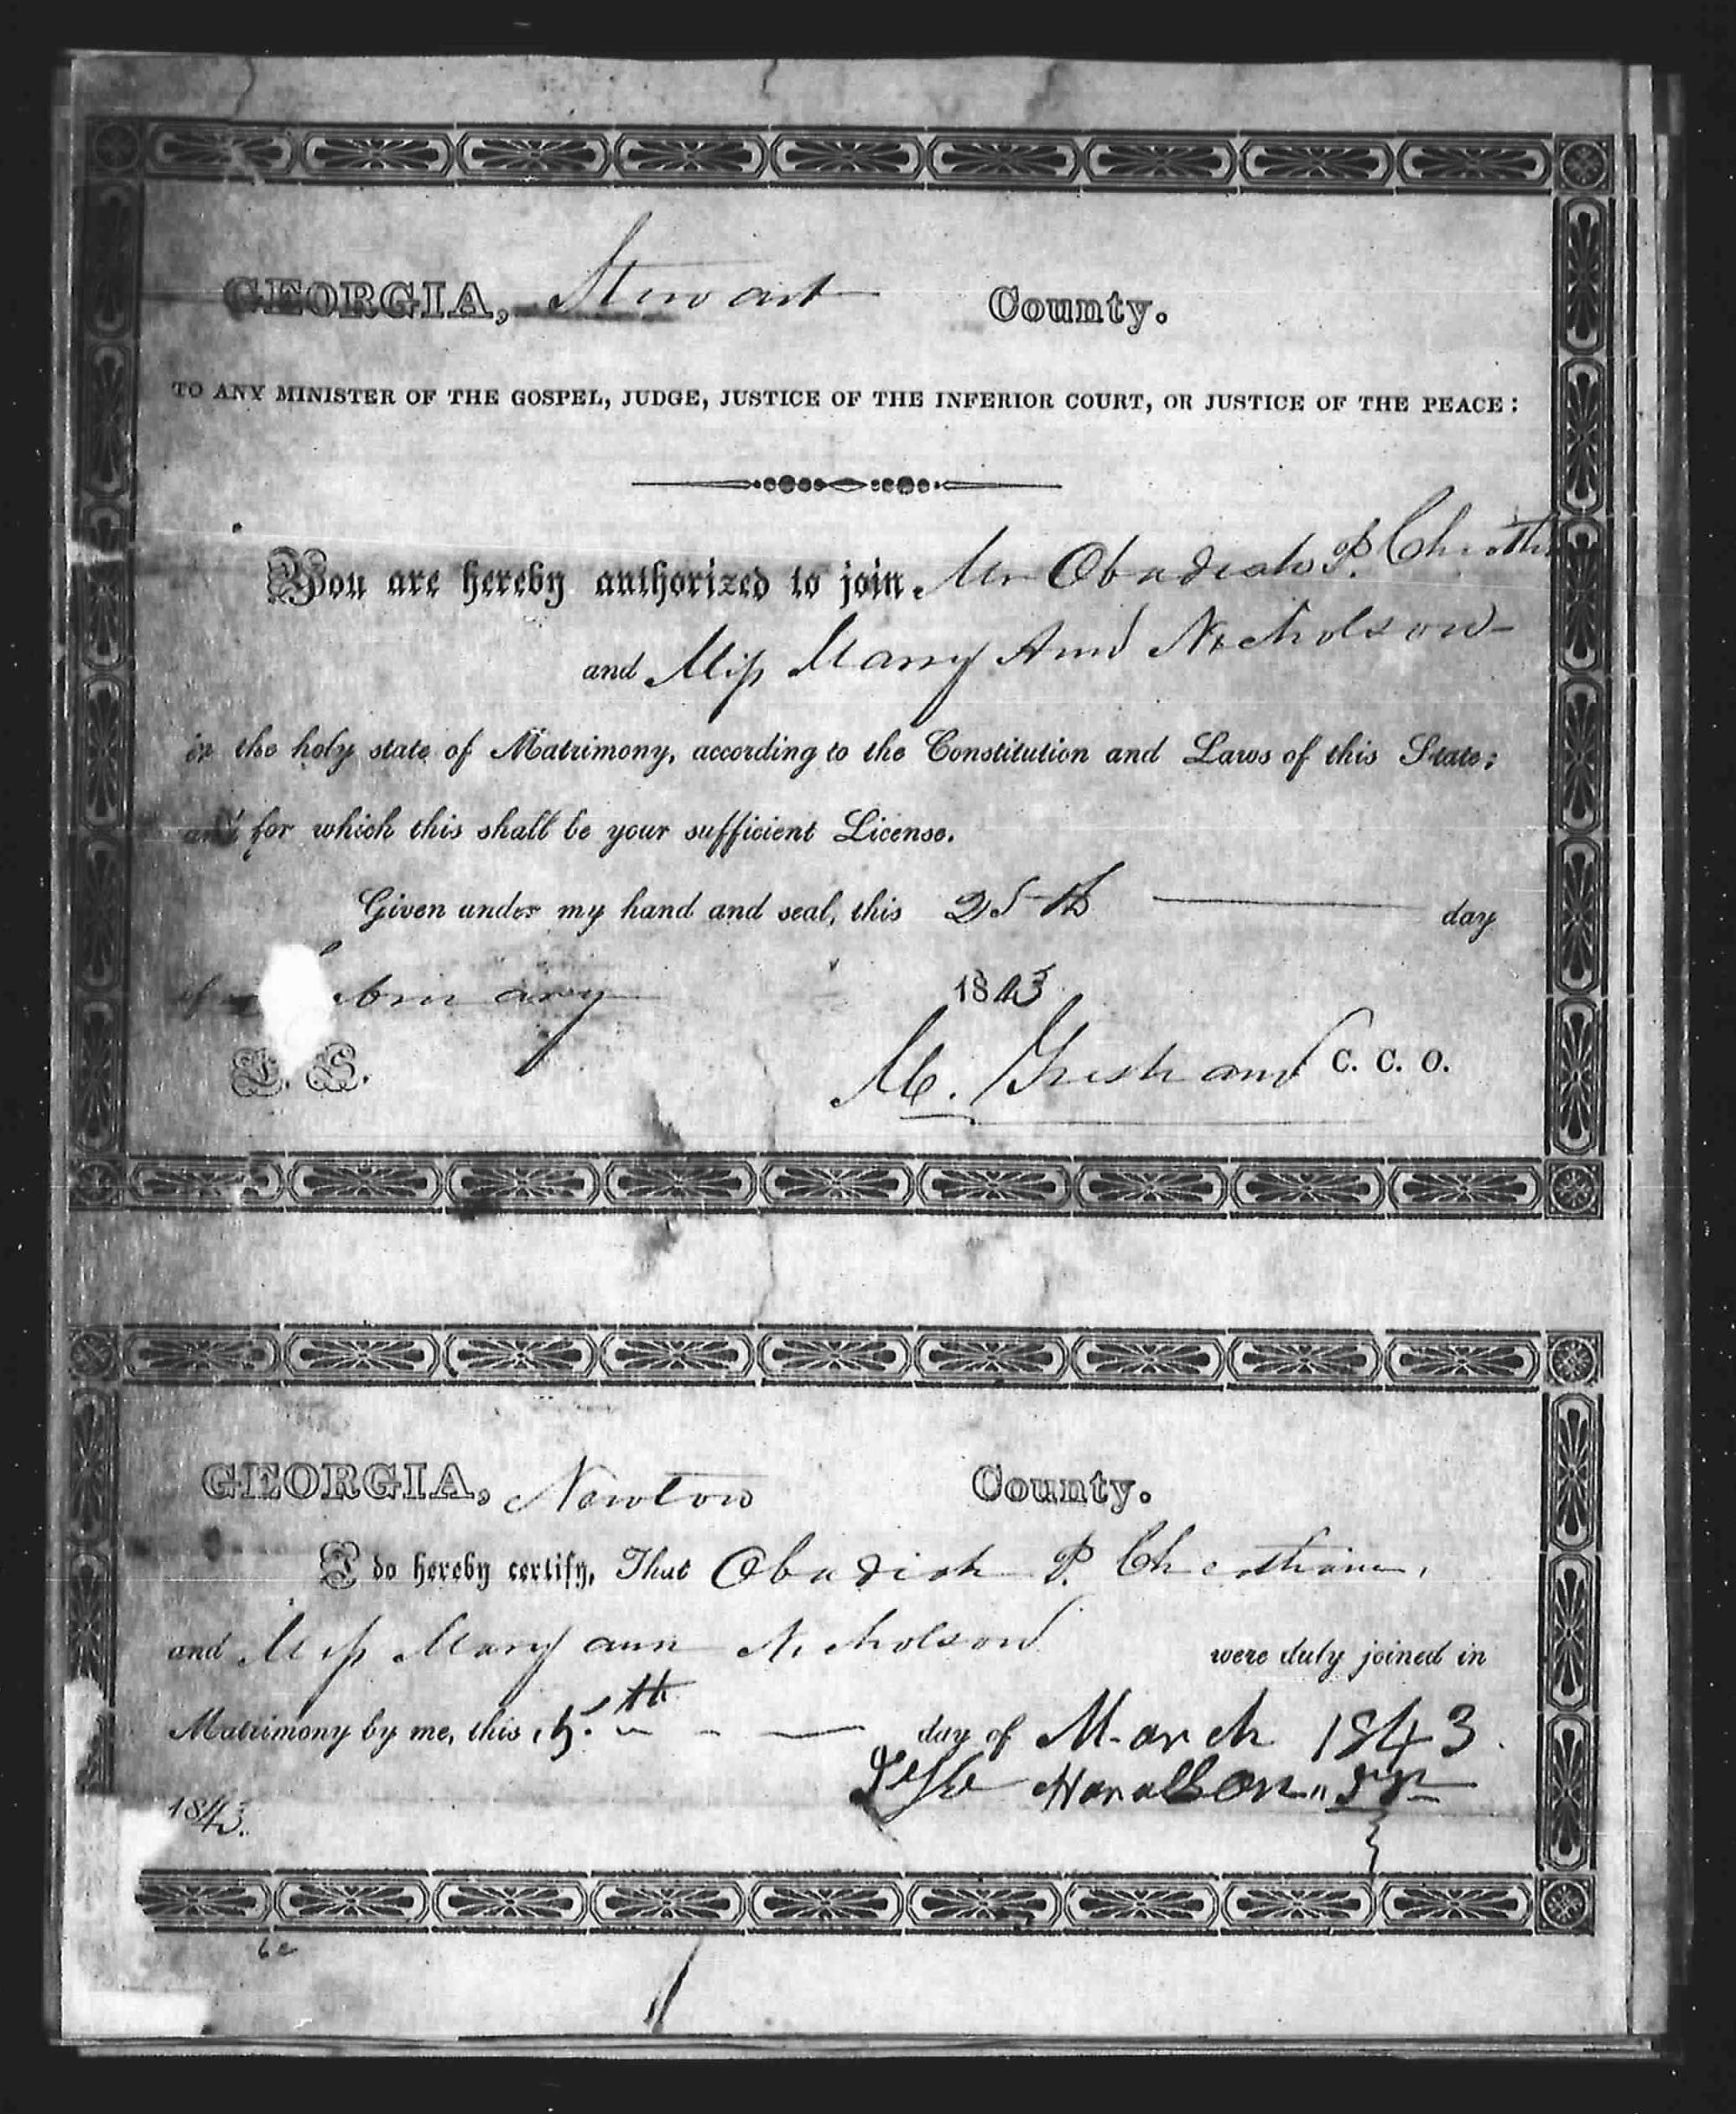 GEORGIA, Stewart County.
TO ANY MINISTER OF THE GOSPEL, JUDGE, JUSTICE OF THE INFERIOR COURT, OR JUSTICE OF THE PEACE:
You are hereby authorized to join Mr Obadiah P. Cheath
and Miss Mary Ann Nicholson
in the holy state of Matrimony, according to the Constitution and Laws of this State;
and for which this shall be your sufficient License.
Given under my hand and seal, this 25th day
of bruary 1843
L. S. M. Gresham C. C. O.
GEORGIA, Newton County.
I do hereby certify, That Obadiah P.
and Miss Mary ann Nicholson were duly joined in
Matrimony by me, this 5th day of March 1843.
Haralson
1843.